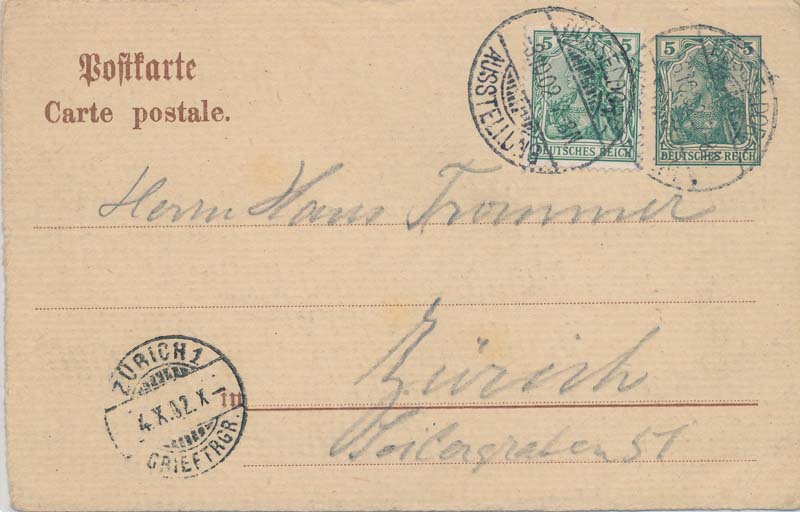 Postkarte
Carte postale.
5 5
DEUTSCHES REICH
5 5
DEUTSCHES REICH
DÜSSELDORF
AUSSTELLUNG
Herrn Hans Trommer
in Zürich
Seilergraben 51
ZÜRICH 1
4.X.02.X
BRIEFTRGR.